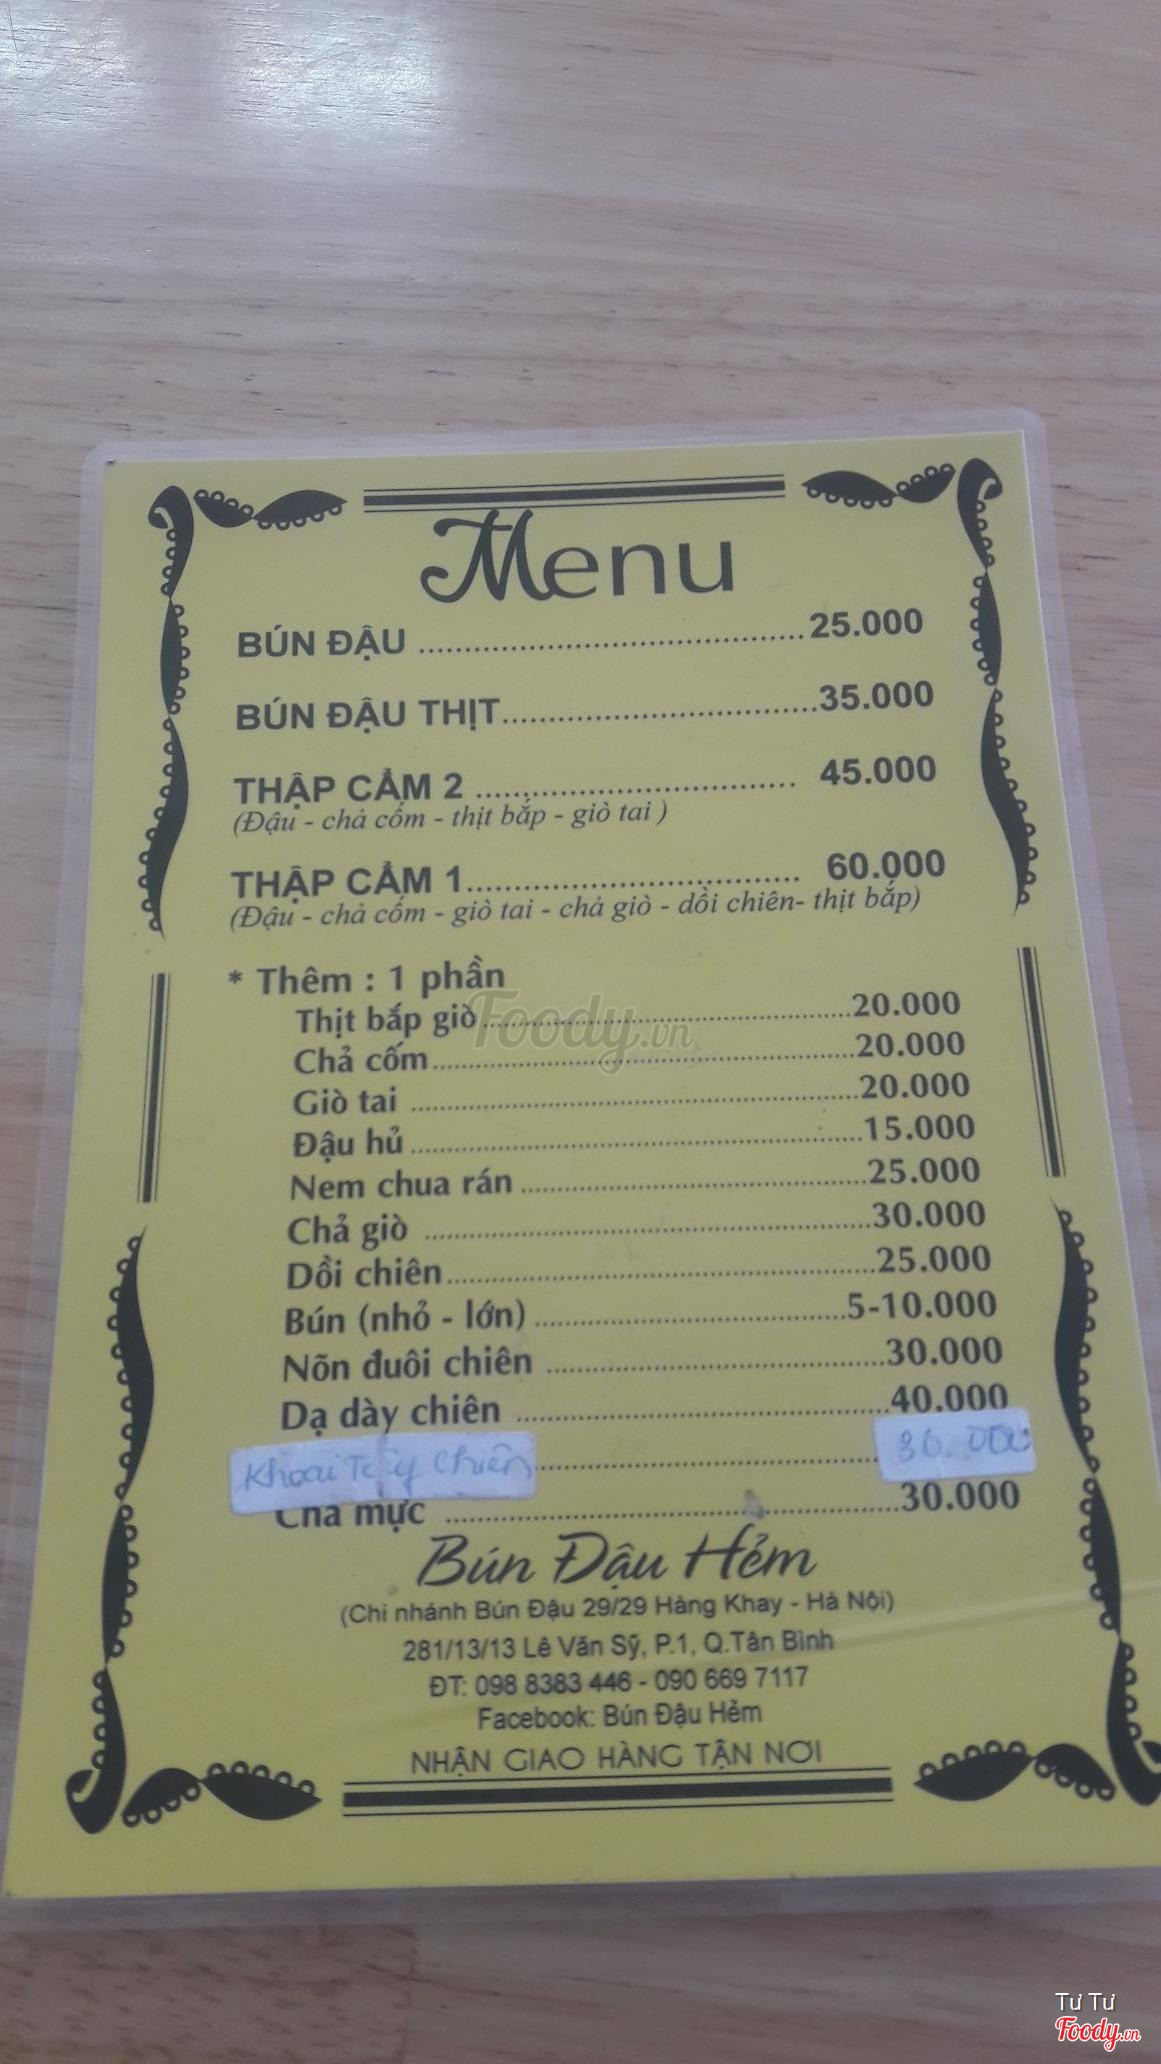 Menu
BÚN ĐẬU ........ 25.000
BÚN ĐẬU THỊT........ 35.000
THẬP CẨM 2 ........ 45.000
(Đậu - chả cốm - thịt bắp - giò tai )
THẬP CẨM 1........ 60.000
(Đậu - chả cốm - giò tai - chả giò - dồi chiên- thịt bắp)
* Thêm : 1 phần
Thịt bắp giò........20.000
Chả cốm........20.000
Giò tai ........20.000
Đậu hủ ........15.000
Nem chua rán ........25.000
Chả giò ........30.000
Dồi chiên........25.000
Bún (nhỏ - lớn) ........5-10.000
Nõn đuôi chiên ........30.000
Dạ dày chiên ........40.000
Khoai Tây Chiên ........ 30.000
Chả mực ........30.000
Bún Đậu Hẻm
(Chi nhánh Bún Đậu 29/29 Hàng Khay - Hà Nội)
281/13/13 Lê Văn Sỹ, P.1, Q.Tân Bình
ĐT: 098 8383 446 - 090 669 7117
Facebook: Bún Đậu Hẻm
NHẬN GIAO HÀNG TẬN NƠI
Foody.vn
Tư Tư
Foody.vn